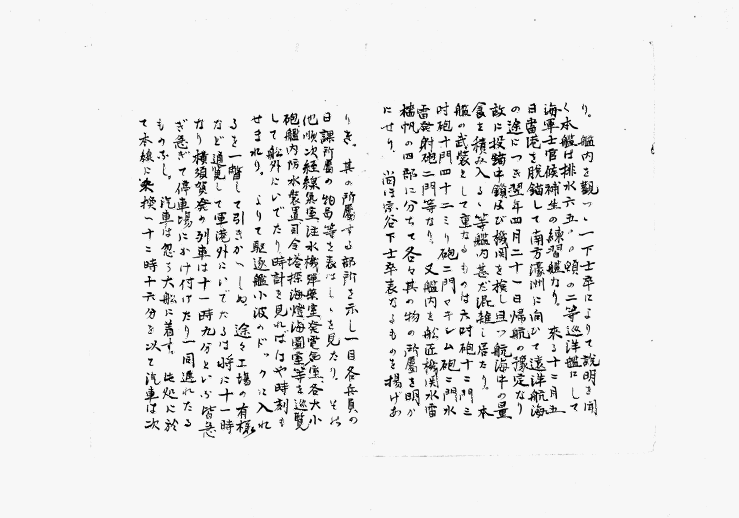 り。艦内を観つゝ一下士卒によりて説明を聞
く本艦は排水六五〇〇頓の二等巡洋艦にして
海軍士官候補生の練習艦なり。来る十二月五
日当港を脱錨して南方濠洲に向ひて遠洋航海
の途につき翌年四月二十一日帰航の豫定なり
故に投錨中錨及び機関を検し且つ航海中の量
食を積み入るゝ等艦内甚だ混雑し居たり。本
艦の武装として重なるものは六吋砲十二門三
吋砲十門四十二ミリ砲二門マキシム砲二門水
雷発射砲二門等なり。又艦内を船匠機関水雷
檣帆の四部に分ちて各々其の物の所属を明か
にせり、尚ほ宗谷下士卒表なるものを揚げあ
りき。其の所属する部所を示し一目各兵員の
日課所属の物品等を表はしゝを見たり。それ
他順次経線儀室注水機弾薬室発電気室各大小
砲艦内防水装置司令塔探海燈海図室等を巡覧
して船外にいでたり時計を見ればはや時刻も
せまれり。よりて駆逐艦小波のドックに入れ
るを一瞥して引きかへしぬ。途々工場の有様
など通覧して軍港外にいでたるは将に十一時
なり横須賀発の列車は十一時九分といふ皆急
ぎ急ぎて停車場にかけ付けたり一同遅れたる
ものなし。汽車は忽ち大船に着す。此処に於
て本線に乗換へ十二時十六分を以て汽車は次